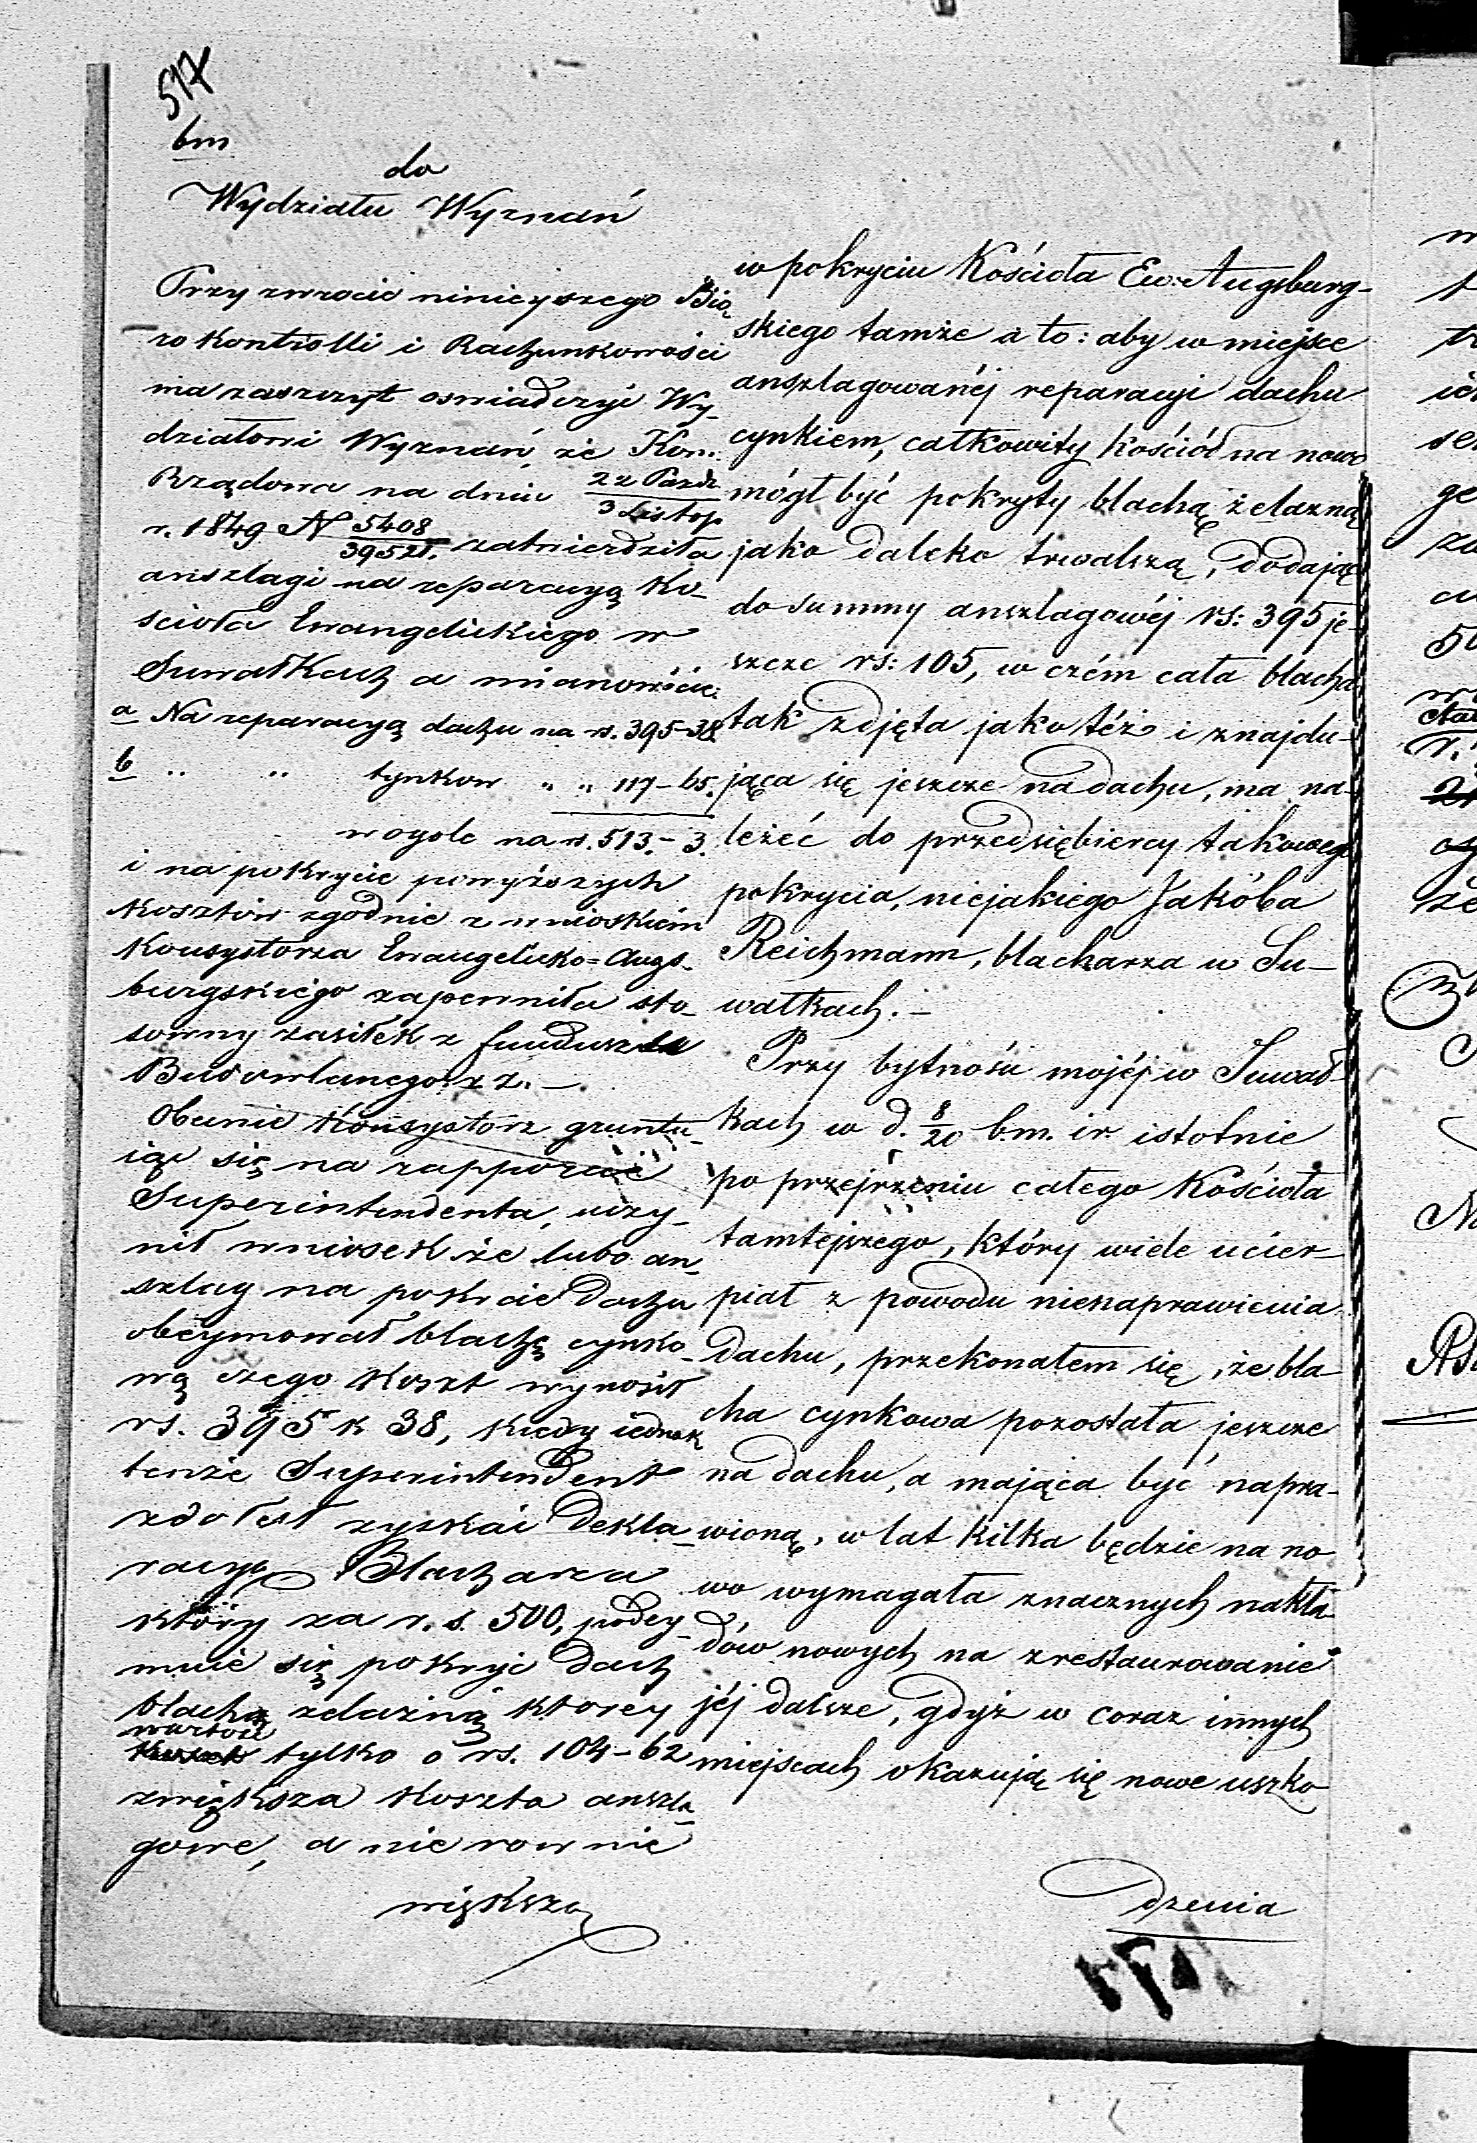 517
bm
do
Wydziału Wyznań
Przy zwrocie ninieyszego Bió
ro Kontrolli i Rachunkowości
ma zaszczyt oswiadczyć Wy-
działowi Wyznań, że Kom:
Rządowa na dniu 22 Paźdz / 3 Listop
r. 1849 N 5408/39521. zatwierdziła
anszlagi na reparacyą Ko-
ścioła Ewangelickiego w
Suwałkach a mianowicie:
a Na reparacyą dachu na rs. 395-38
b " " tynkow " " 117-65.
wogole na rs. 513.-3.
i na pokrycie powyższych
kosztów zgodnie z wnioskiem
Konsystorza Ewangelicko=Augs-
burgskiego zapewniła sto-
sowny zasiłek z funduszu
Budowlanego z z.-
Obecnie Konsystorz gruntu-
iąc się na rapporcie
Superintendenta, uczy-
nił wniosek że lubo an-
szlag na pokrcie Dachu
obeymował blachę cynko-
wą czego koszt wynosił
rs. 395 k 38, kiedy iednak
tenże Superintendent
zdołał zyskać Dekla-
racyę Blacharza
który za r.s. 500, podey-
muie się pokryć Dach
blachą zelazną ktorey
wartość
tylko o rs. 104-62
zwiększa koszta anszla
gowe, a nierownie
większa
w pokryciu Kościoła Ew: Augsburg-
skiego tamże a to: aby w miejsce
anszlagowanéj reparacyi dachu
cynkiem, całkowity kościół na nowo
mógł być pokryty blachą żelazną
jako daleko trwalszą, dodając
do summy anszlagowéj rs: 395 je-
szcze rs: 105, w czém cała blacha
tak zdjęta jako téż i znajdu-
jąca się jeszcze na dachu, ma na-
leżeć do przedsiębiercy takowego
pokrycia, niejakiego Jakóba
Reichmann, blacharza w Su-
wałkach.-
Przy bytności mojéj w Suwał-
kach w d. 8/20 b.m. i r. istotnie
po przejrzeniu całego Kościoła
tamtejszego, który wiele ucier-
piał z powodu nienaprawienia
dachu, przekonałem się, że bla-
cha cynkowa pozostała jeszcze
na dachu, a mająca być napra-
wioną, w lat kilka będzie na no
wo wymagała znacznych nakła-
dów nowych na zrestaurowanie
jéj dalsze, gdyż w coraz innych
miejscach okazują się nowe uszko-
dzenia